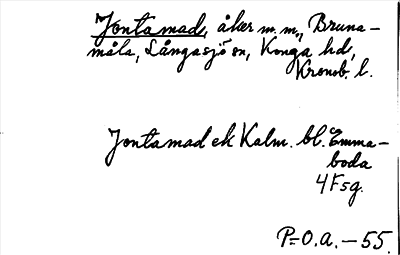 Jontamad, åker m.m., Bruna-
måla, Långasjö sn, Konga hd,
Kronob. l.
Jontamad ek Kalm. bl. Emma-
boda
4 F 5 g.
P=O.a.-55.